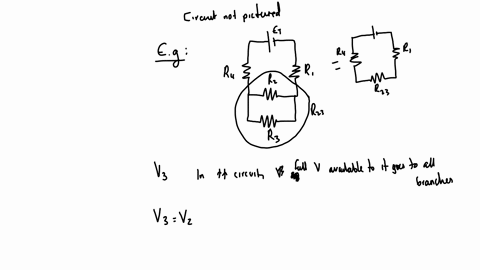 Circuit not pictured
E.g:
ET
R4
R1
R2
R3
R23
=
R4
R1
R23
V3 In circuit, full V available to it goes to all
branches
V3 = V2